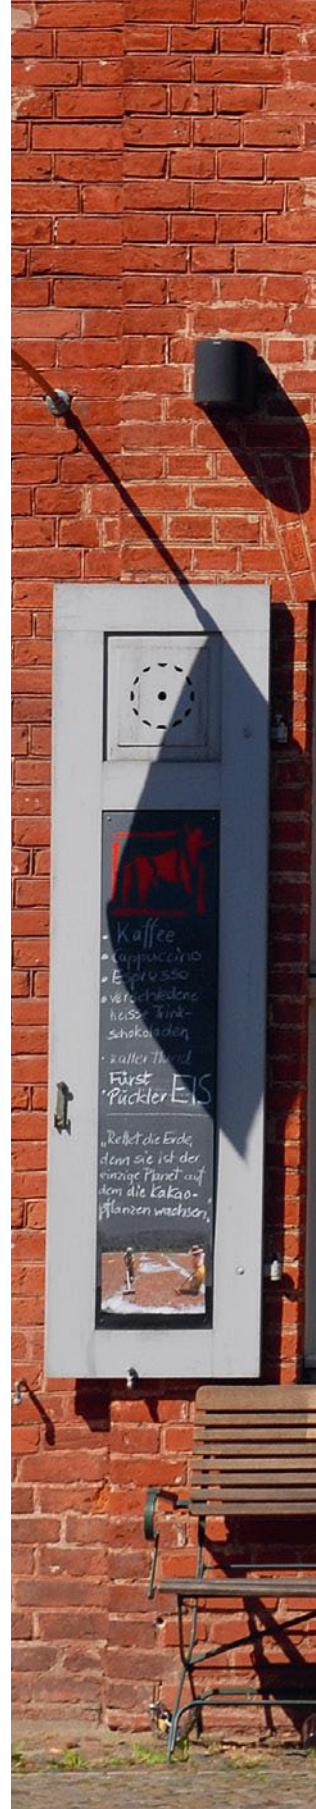 • Kaffee
• Cappuccino
• Espresso
• verschiedene
heisse Trink-
schokoladen
•
Fürst
Pückler EIS
„Rettet die Erde,
denn sie ist der
einzige Planet auf
dem die Kakao-
pflanzen wachsen."